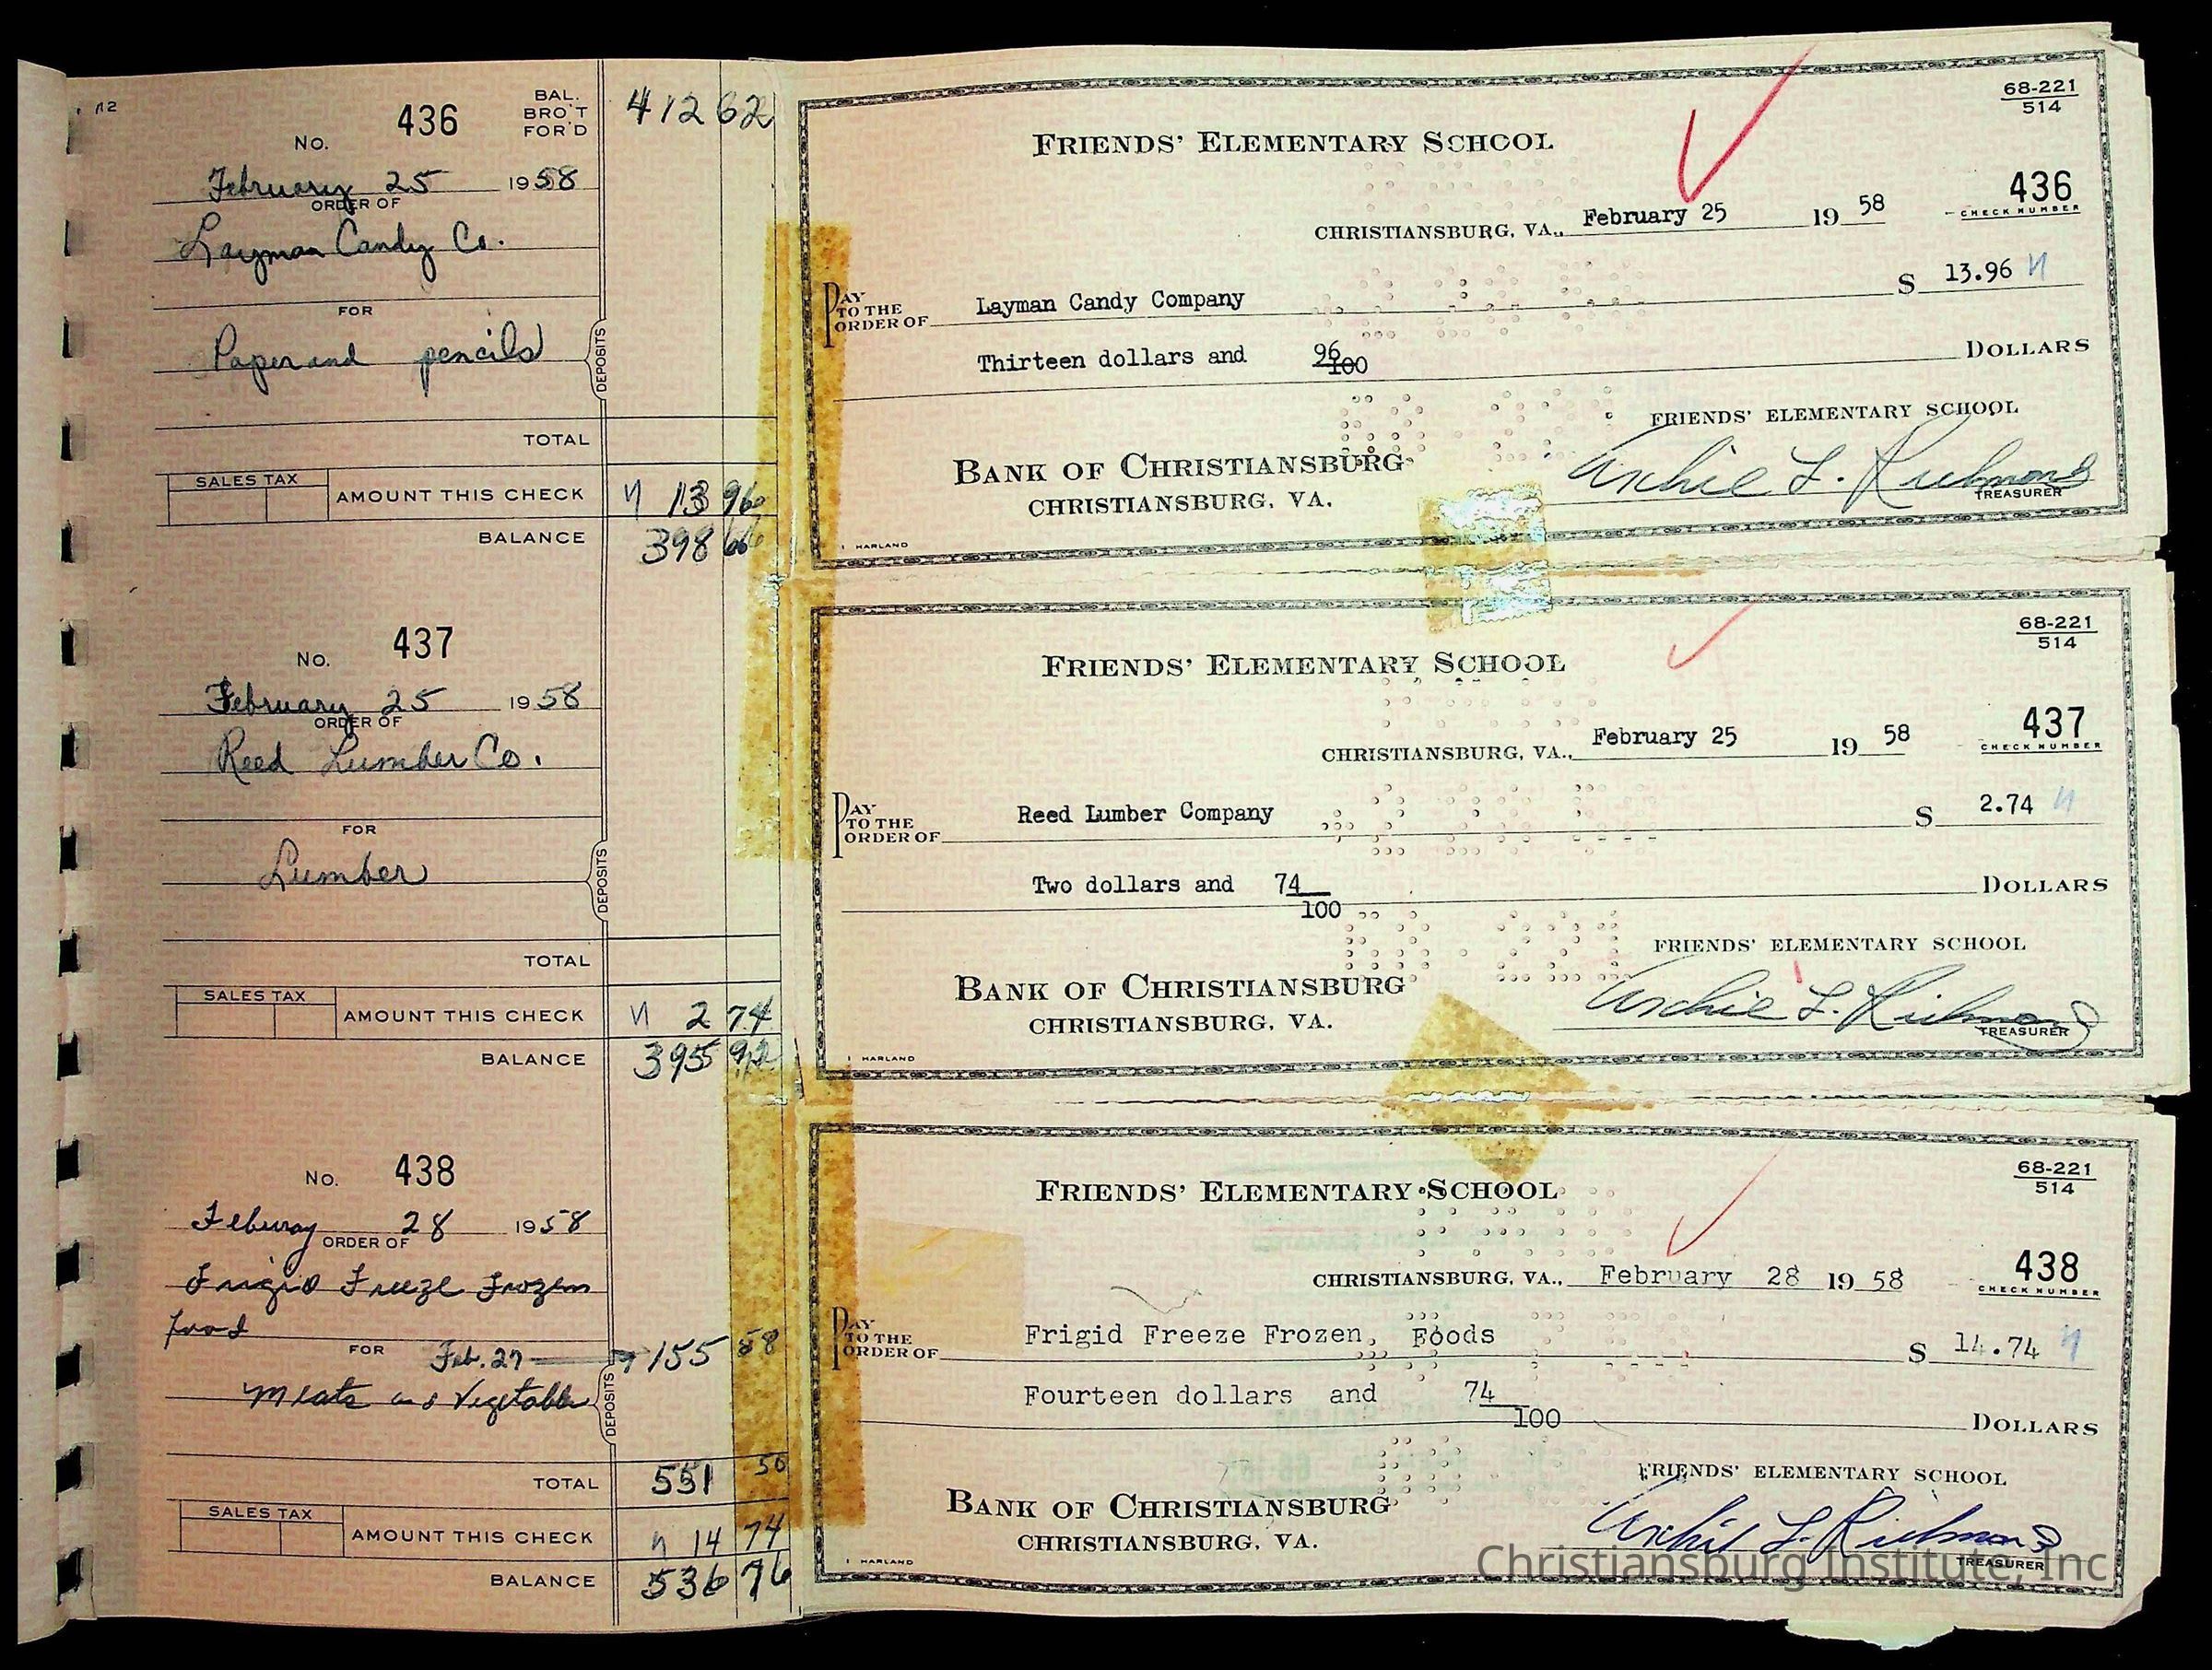 No. 436 BAL. BRO'T FOR'D 412 62
February 25 1958
ORDER OF
Layman Candy Co.
FOR
Paper and pencils
DEPOSITS
TOTAL
SALES TAX AMOUNT THIS CHECK 13 96
BALANCE 398 66
FRIENDS' ELEMENTARY SCHOOL
68-221
514
436
CHECK NUMBER
CHRISTIANSBURG, VA., February 25 19 58
PAY TO THE ORDER OF Layman Candy Company $ 13.96
Thirteen dollars and 96/100 DOLLARS
FRIENDS' ELEMENTARY SCHOOL
BANK OF CHRISTIANSBURG
CHRISTIANSBURG, VA.
Archie L. Richmond
TREASURER
HARLAND
No. 437
February 25 1958
ORDER OF
Reed Lumber Co.
FOR
Lumber
DEPOSITS
TOTAL
SALES TAX AMOUNT THIS CHECK 2 74
BALANCE 395 92
FRIENDS' ELEMENTARY SCHOOL
68-221
514
437
CHECK NUMBER
CHRISTIANSBURG, VA., February 25 19 58
PAY TO THE ORDER OF Reed Lumber Company $ 2.74
Two dollars and 74/100 DOLLARS
FRIENDS' ELEMENTARY SCHOOL
BANK OF CHRISTIANSBURG
CHRISTIANSBURG, VA.
Archie L. Richmond
TREASURER
HARLAND
No. 438
Feburay 28 1958
ORDER OF
Frigid Freeze Frozen
food
FOR Feb. 27 155 58
Meats and Vegetable
DEPOSITS
TOTAL 551 50
SALES TAX AMOUNT THIS CHECK 14 74
BALANCE 536 76
FRIENDS' ELEMENTARY SCHOOL
68-221
514
438
CHECK NUMBER
CHRISTIANSBURG, VA., February 28 19 58
PAY TO THE ORDER OF Frigid Freeze Frozen, Foods $ 14.74
Fourteen dollars and 74/100
DOLLARS
FRIENDS' ELEMENTARY SCHOOL
BANK OF CHRISTIANSBURG
CHRISTIANSBURG, VA.
Archie L. Richmond
TREASURER
HARLAND
Christiansburg Institute, Inc